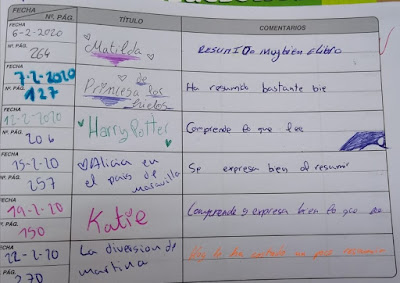 FECHA
Nº. PÁG. TÍTULO COMENTARIOS
6-2-2020
Nº. PÁG. Matilda RESUMIDo muy bien el libro
264
FECHA
7-2-2020 Princesa de los
Nº. PÁG. hielos Ha resumido bastante bie
127
FECHA
12-2-2020 Harry Potter Comprende lo que lee
Nº. PÁG.
206
FECHA
15-2-20 Alicia en
Nº. PÁG. el país de maravilla Se expresa bien al resumir
257
FECHA
19-2-20 Katie Comprende y expresa bien lo que
Nº. PÁG.
150
FECHA
22-2-20 La diversion de
Nº. PÁG. martina Hoy le ha costado un poco
270